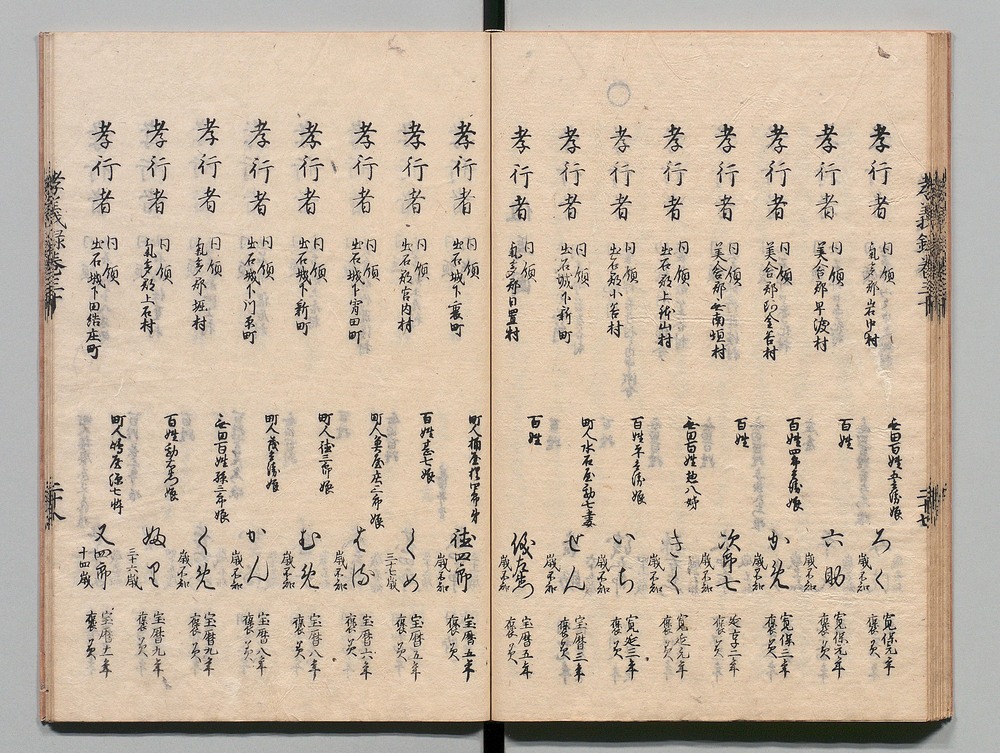 孝義録巻三十
二十七
孝行者 同領 気多郡岩中村 無田百姓 娘 ろく 歳不知 寛保元年 褒美
孝行者 同領 美含郡早渡村 百姓 六助 歳不知 寛保元年 褒美
孝行者 同領 美含郡 村 百姓四郎兵衛娘 かめ 歳不知 寛保三年 褒美
孝行者 同領 美含郡無南垣村 百姓 次郎七 歳不知 延享二年 褒美
孝行者 同領 出石郡上鉢山村 無田百姓惣八姉 きく 歳不知 寛延元年 褒美
孝行者 同領 出石郡小谷村 百姓平兵衛娘 いち 歳不知 寛延三年 褒美
孝行者 同領 出石城下新町 町人水石屋勘七妻 せん 歳不知 宝暦三年 褒美
孝行者 同領 気多郡日置村 百姓 儀左衛門 歳不知 宝暦五年 褒美
孝行者 同領 出石城下 町 町人桶屋 弟 徳四郎 歳不知 宝暦五年 褒美
孝行者 同領 出石郡宮内村 百姓甚七娘 くめ 三十七歳 宝暦五年 褒美
孝行者 同領 出石城下宵田町 町人 屋庄三郎娘 歳不知 宝暦六年 褒美
孝行者 同領 出石城下新町 町人徳三郎娘 むめ 歳不知 宝暦八年 褒美
孝行者 同領 出石城下川原町 町人茂兵衛娘 かん 歳不知 宝暦八年 褒美
孝行者 同領 気多郡堀村 無田百姓孫三郎娘 くめ 歳不知 宝暦九年 褒美
孝行者 同領 気多郡上石村 百姓勘右衛門娘 三十六歳 宝暦九年 褒美
孝行者 同領 出石城下田結庄町 町人嶋屋源七忰 又四郎 十四歳 宝暦十一年 褒美
孝義録巻三十
二十八